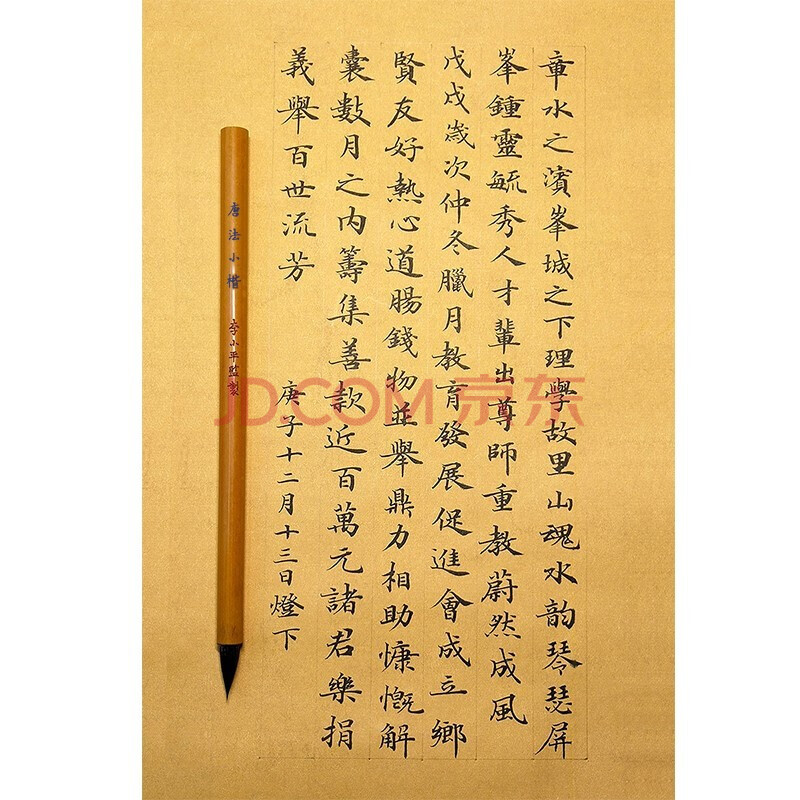 章水之濱峯城之下理學故里山魂水韵琴瑟屏
峯鍾靈毓秀人才輩出尊師重教蔚然成風
戊戌歲次仲冬臘月教育發展促進會成立鄉
賢友好熱心道腸錢物並舉鼎力相助慷慨解
囊數月之内籌集善款近百萬元諸君樂捐
義舉百世流芳
庚子十二月十三日燈下
唐法小楷
李小平監製
JD.COM 京东